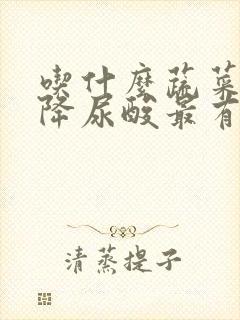 喫什麼蔬菜
降尿酸最有
清蒸提子